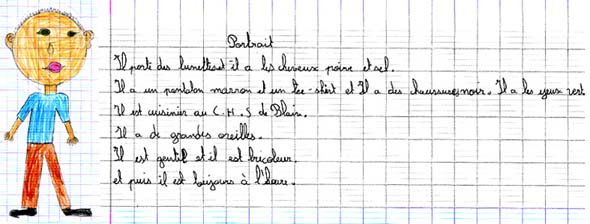 Portrait
Il porte des lunettes et il a les cheveux poivre et sel.
Il a un pantalon marron et un tee-shirt et Il a des chaussures noir. Il a les yeux vert
Il est cuisinier au C.H.S de Blain.
Il a de grandes oreilles.
Il est gentil et il est bricoleur.
et puis il est toujours à l'heure.